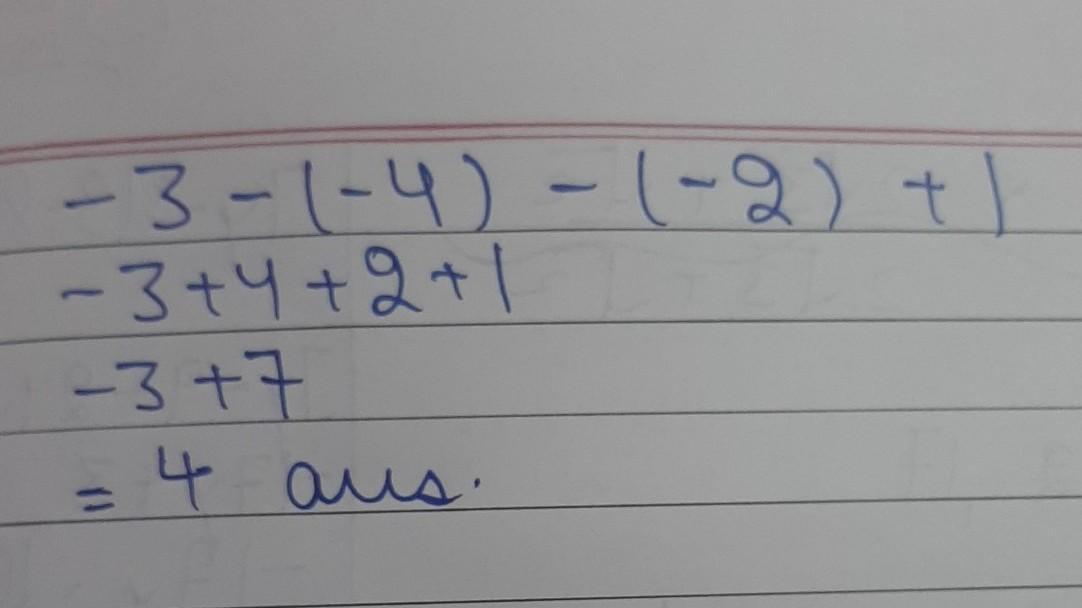 -3-(-4) -(-2) +1
-3+4+2+1
-3+7
= 4 ans.